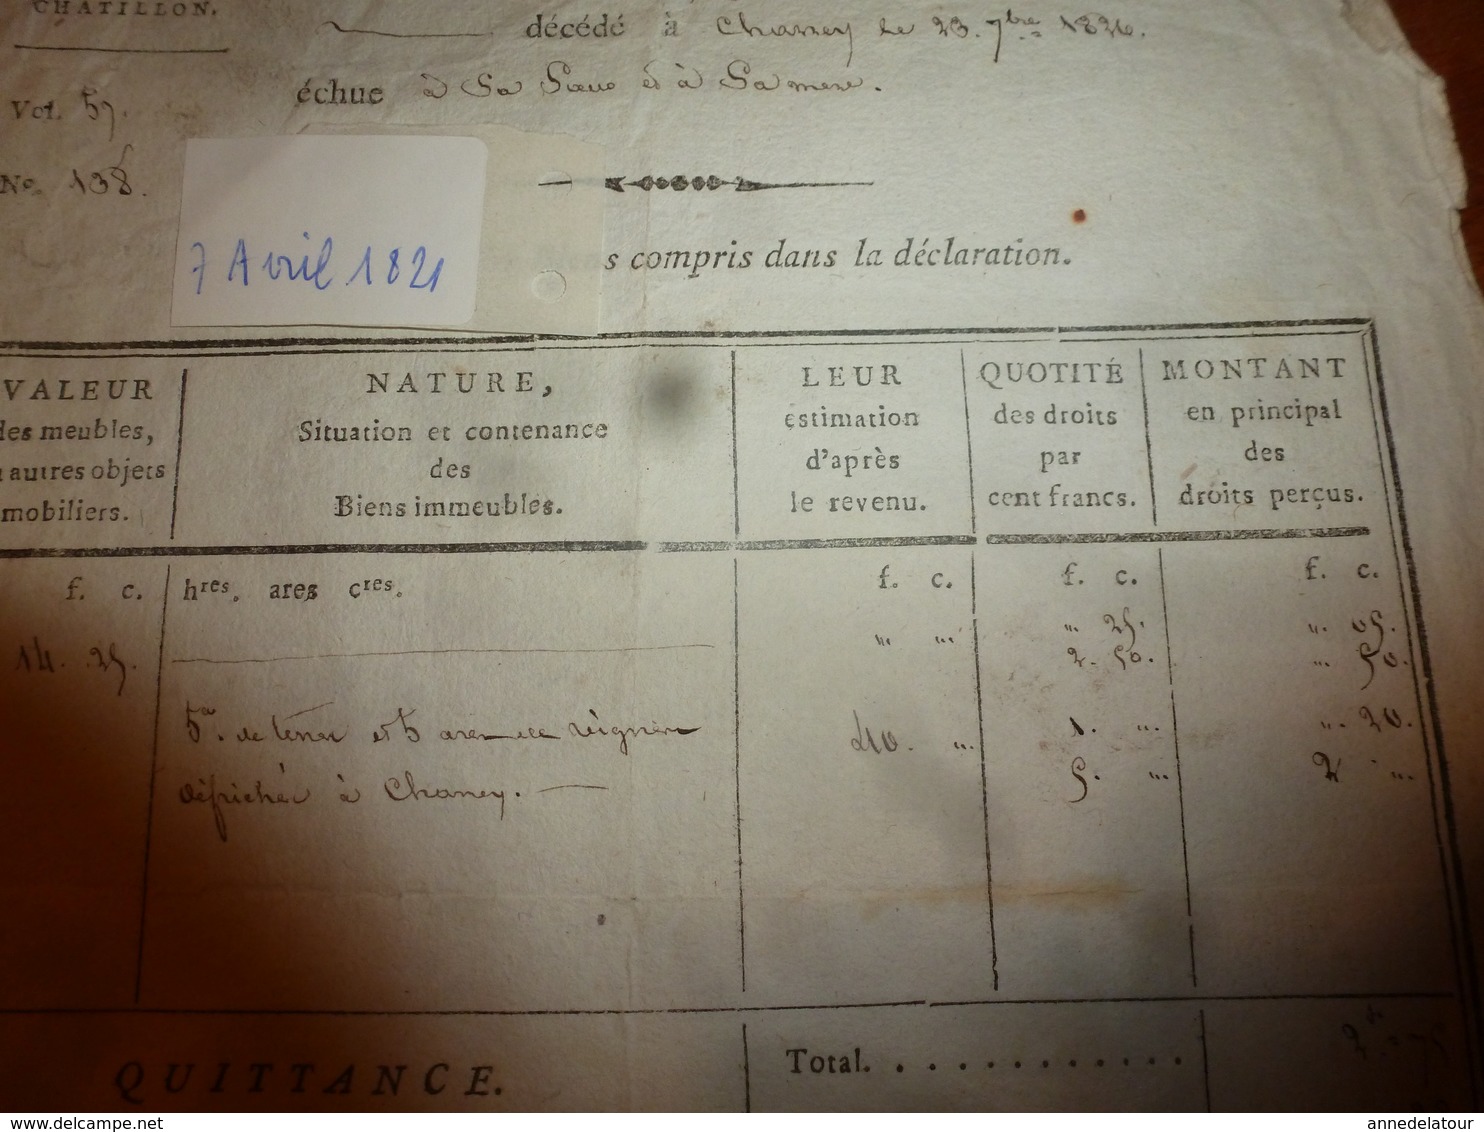 CHATILLON.
décédé à Chaney le 23. 7bre 1820.
échue à Sa Sœur et à Sa mere.
Vol. 57.
No. 138.
7 Avril 1821
s compris dans la déclaration.
VALEUR
des meubles,
autres objets
mobiliers.
NATURE,
Situation et contenance
des
Biens immeubles.
LEUR
estimation
d'après
le revenu.
QUOTITÉ
des droits
par
cent francs.
MONTANT
en principal
des
droits perçus.
f. c.
hres. ares cres.
f. c.
f. c.
f. c.
14. 25.
" "
" 25.
" 05.
2. 50.
" 50.
5a. de terre et 5 ares de vignes
40. "
1. "
" 20.
défrichée à Chaney.
5. "
2 "
QUITTANCE.
Total. . . . . . . . . . . .
2f. 75
www.delcampe.net
annedelatour